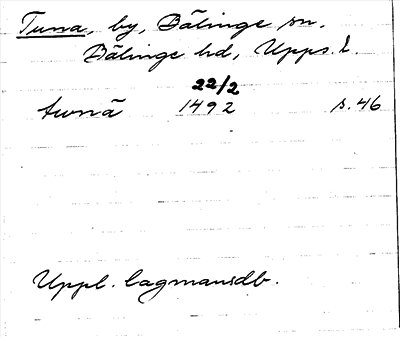 Tuna, by, Bälinge sn.
Bälinge hd, Upps. l.
22/2
tunā 1492 s. 46
Uppl. lagmansdb.